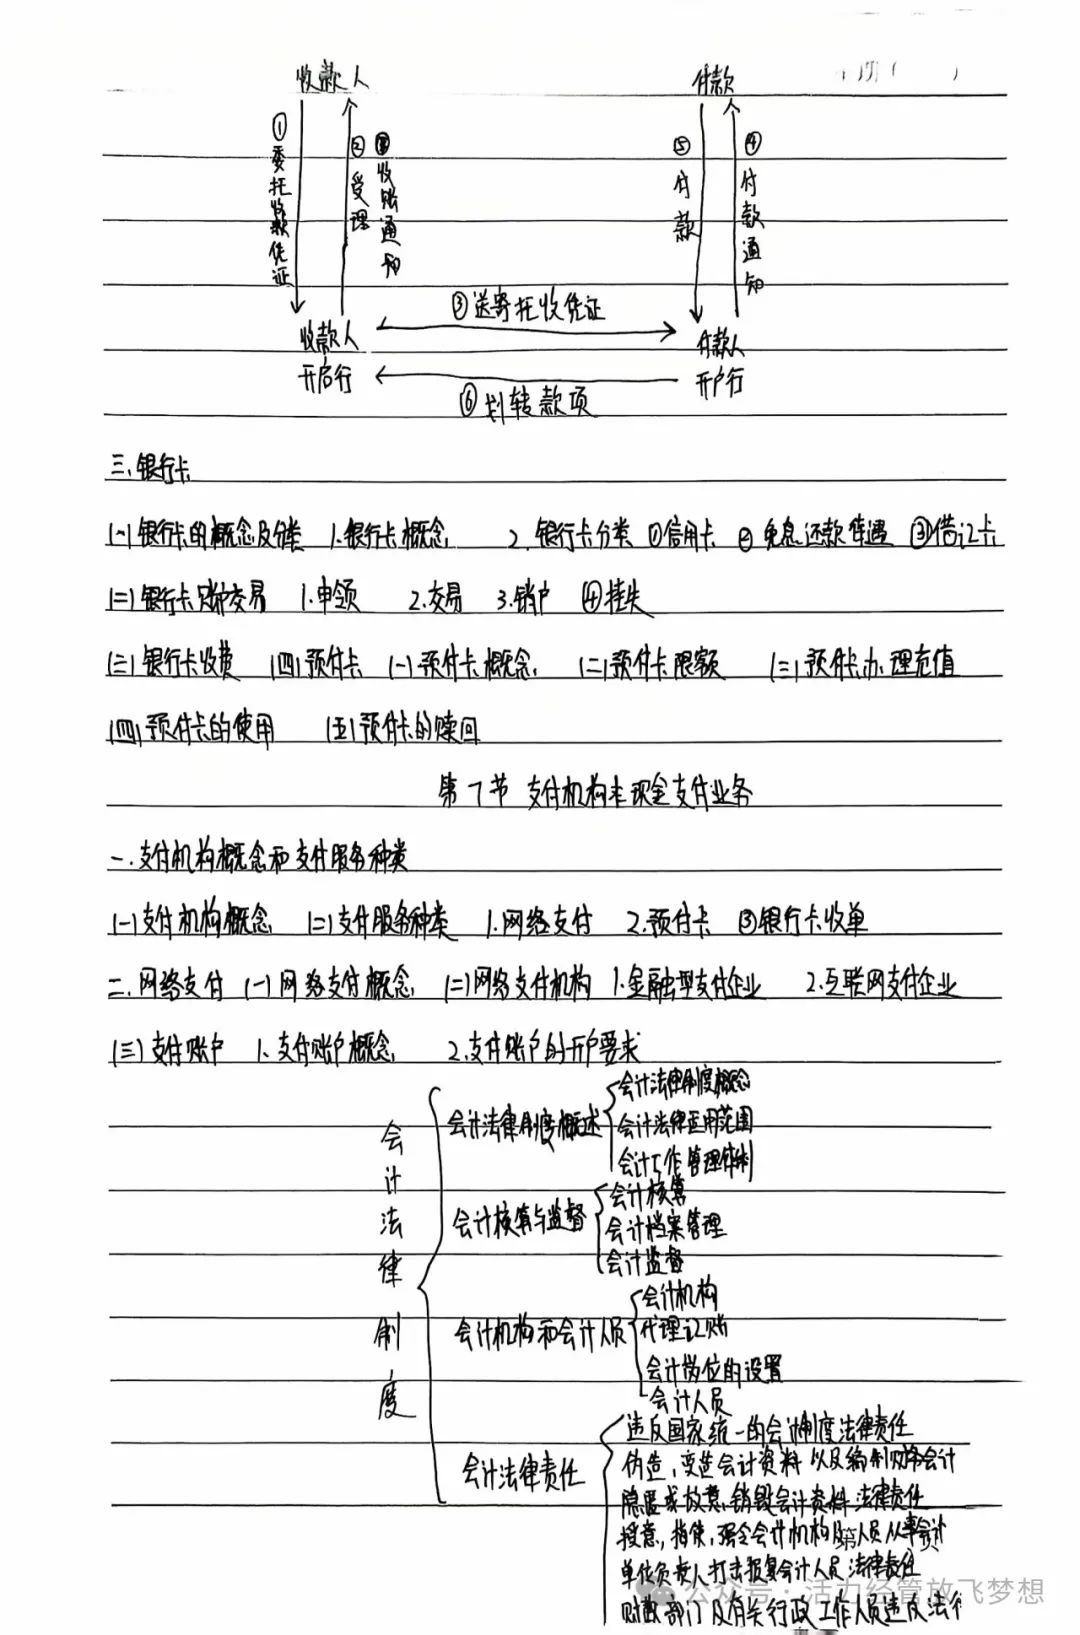 收款人 付款
①委托收款凭证 ②受理 收账通知 ⑤付款 ④付款通知
③送寄托收凭证
收款人 付款人
开启行 开户行
⑥划转款项
三.银行卡
(一)银行卡的概念及分类 1.银行卡概念 2.银行卡分类 ①信用卡 ②免息还款待遇 ③借记卡
(二)银行卡账户交易 1.申领 2.交易 3.销户 ④挂失
(三)银行卡收费 (四)预付卡 (一)预付卡概念 (二)预付卡限额 (三)预付卡办理充值
(四)预付卡的使用 (五)预付卡的赎回
第7节 支付机构非现金支付业务
一.支付机构概念和支付服务种类
(一)支付机构概念 (二)支付服务种类 1.网络支付 2.预付卡 ③银行卡收单
二.网络支付 (一)网络支付概念 (二)网络支付机构 1.金融型支付企业 2.互联网支付企业
(三)支付账户 1.支付账户概念 2.支付账户的开户要求
会计法律制度
会计法律制度概述
会计法律制度概念
会计法律适用范围
会计工作管理体制
会计核算与监督
会计核算
会计档案管理
会计监督
会计机构和会计人员
会计机构
代理记账
会计岗位的设置
会计人员
会计法律责任
违反国家统一的会计制度法律责任
伪造,变造会计资料以及编制财务会计
隐匿或故意销毁会计资料法律责任
授意,指使,强令会计机构及人员从事会计
单位负责人打击报复会计人员法律责任
财政部门及有关行政工作人员违反法律
公众号·活力经管放飞梦想